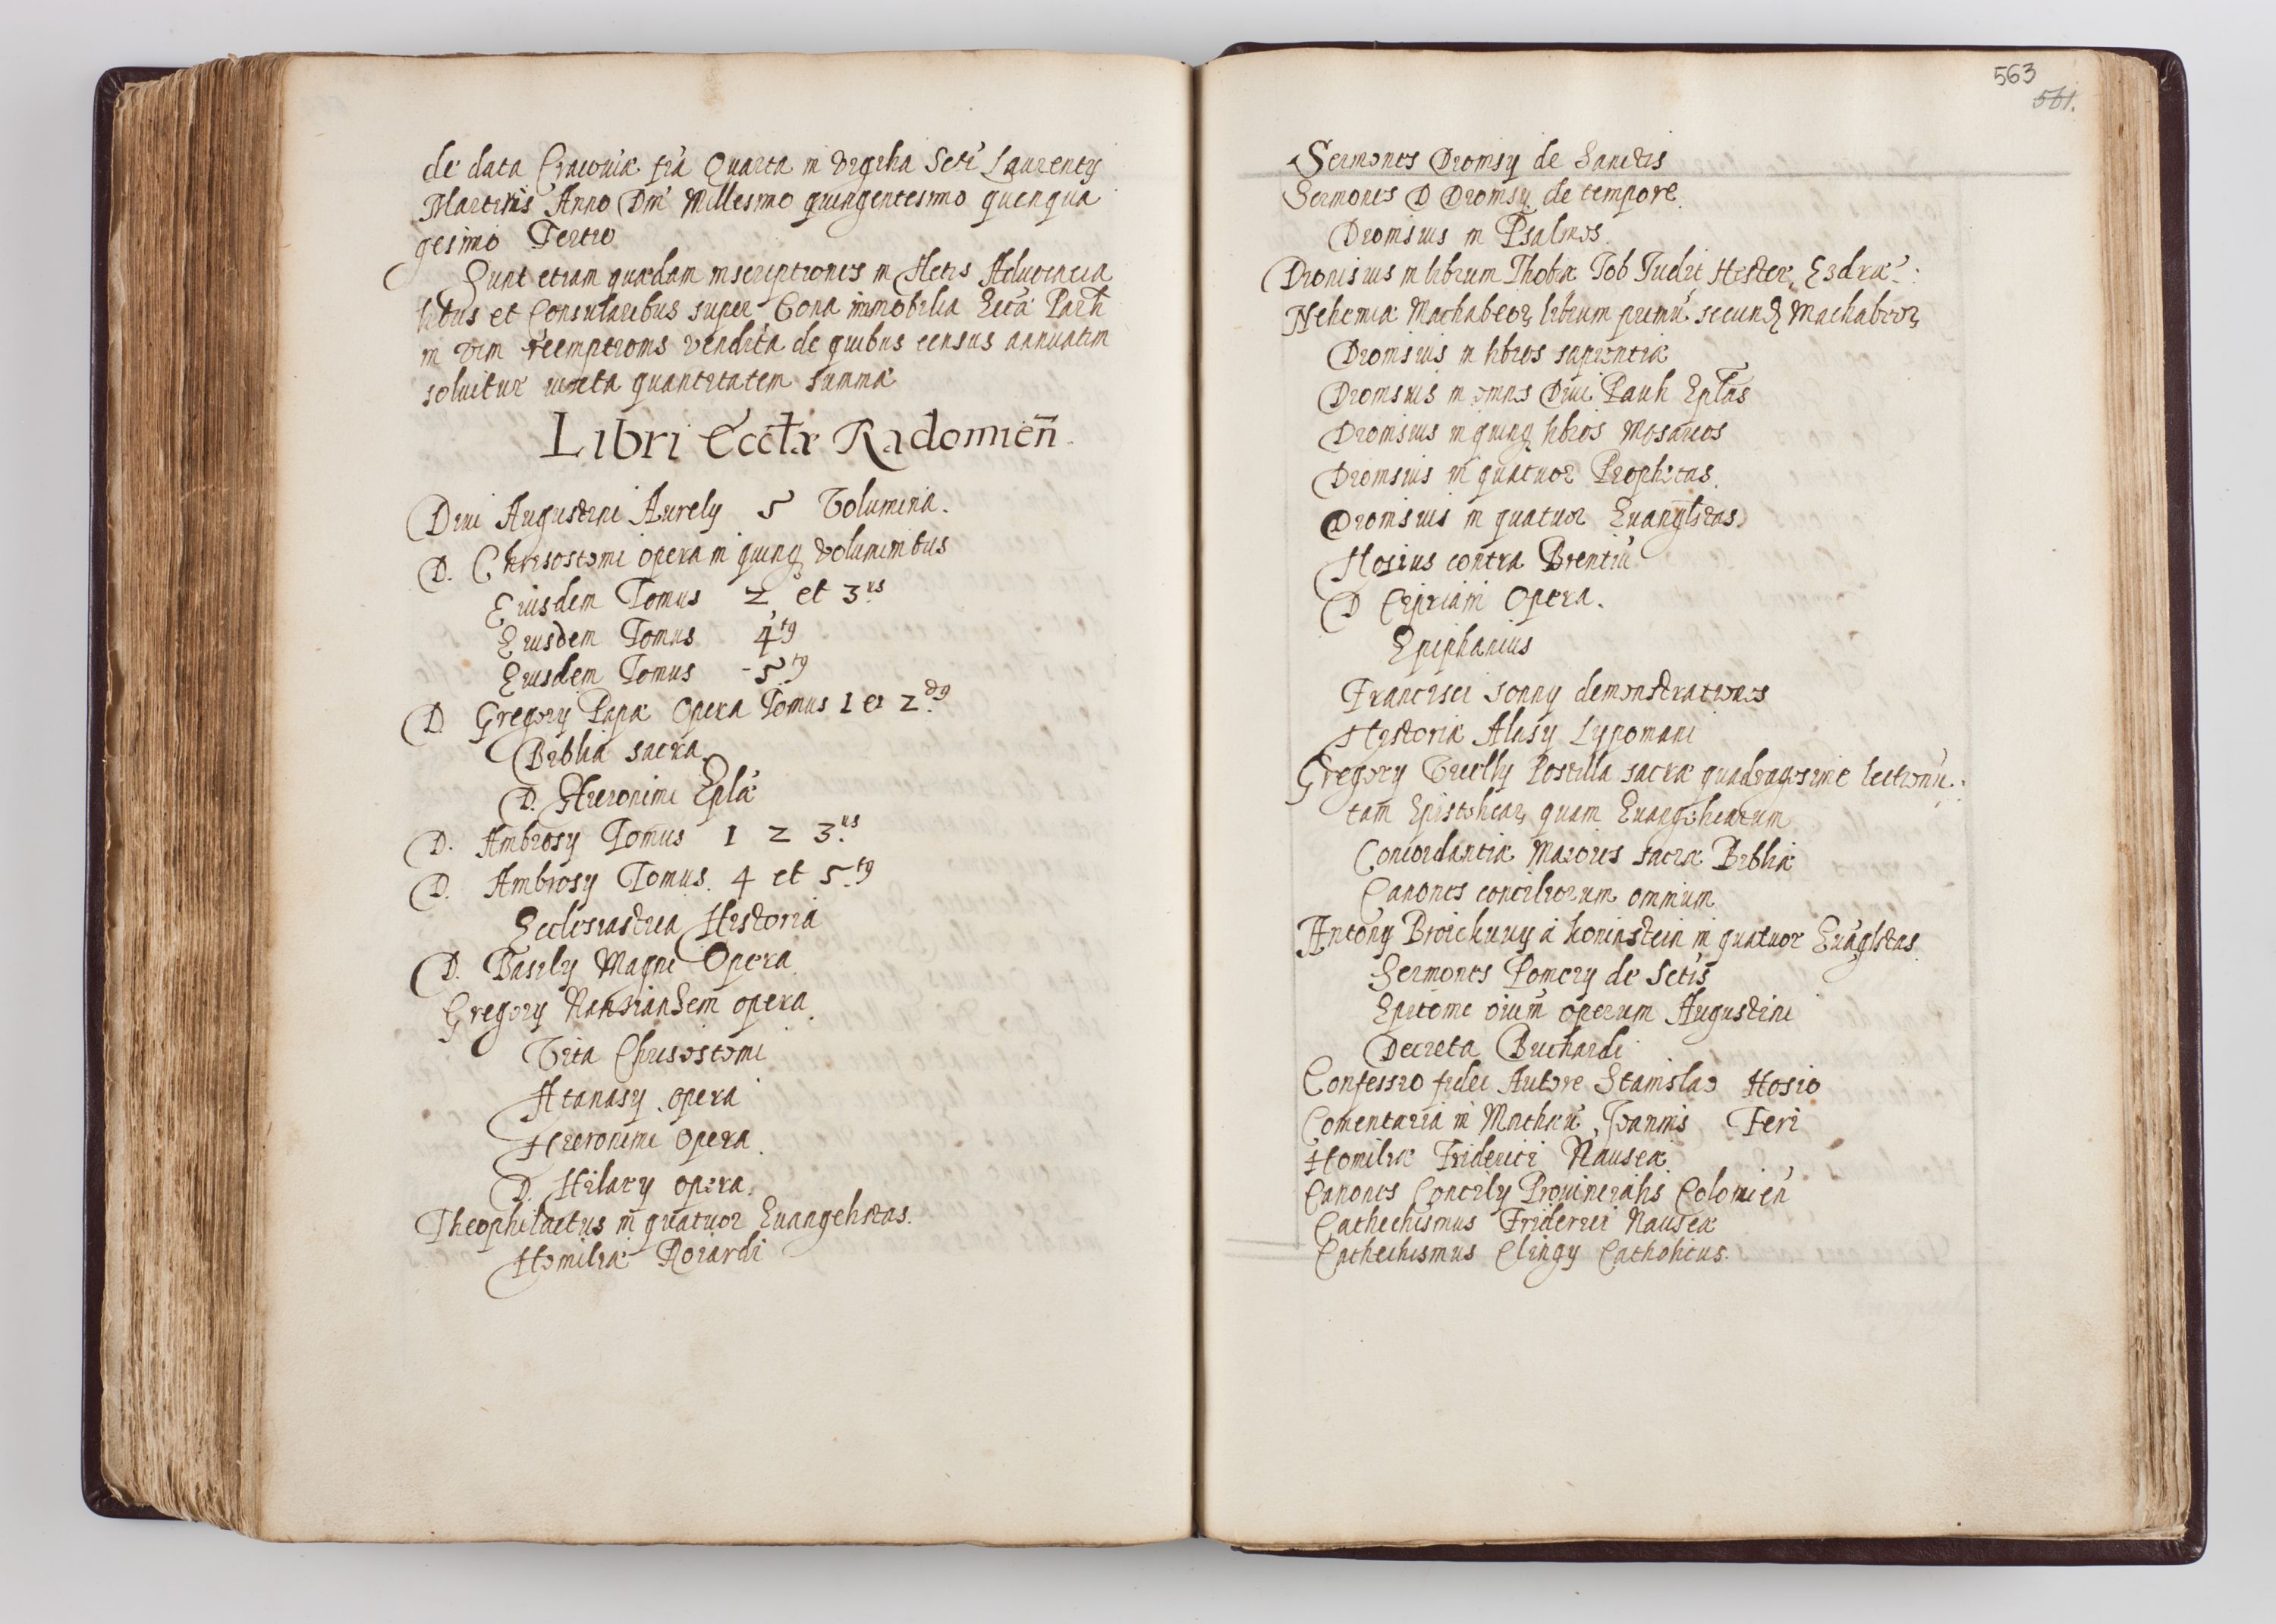 de data Cracouiæ fria Quarta in vigilia Scti Laurenty
Martiris Anno Dni Millesimo quingentesimo quinqua
gesimo Tertio
Sunt etiam quædam inscriptiones in Actis Aduocatia
libus et Consularibus super bona immobilia Eccã
in vim reemptionis vendita de quibus census annuatim
soluitur iuxta quantitatem summæ
Libri Ecctæ Radomien̄
Diui Augustini Aurely 5 Volumina.
D. Chrisostomi opera in quinq voluminibus
Eiusdem Tomus 2 et 3us
Eiusdem Tomus 4tg
Eiusdem Tomus - 5tg
D Gregory Papæ Opera Tomus 1 et 2dg
Biblia sacra
D. Hieronimi Eplæ
D. Ambrosy Tomus 1 2 3us
D. Ambrosy Tomus. 4 et 5tg
Ecclesiastica Historia
D. Basily Magni Opera.
Gregory opera.
Vita Chrisostomi
Atanasy opera
Hieronimi opera.
D. Hilary opera.
Theophilactus in quatuor Euangelistas.
Homiliæ Roiardi
563
561.
Sermones Dionisy de Sanctis
Sermones D Dionisy de tempore.
Dionisius in Psalmos.
Dionisius in librum Thobiæ Iob Iudit, Hester, Esdræ
Nehemiæ Machabeor librum primũ secund Machabeor
Dionisius in libros sapientiæ
Dionisius in omnes Diui Pauli Eplas
Dionisius in quinq libros Mosaicos
Dionisius in quatuor Prophetas.
Dionisius in quatuor Euanglistas
Hosius contra Brentiũ
D Cipriani Opera.
Epiphanius
Francisci Sonny demonstrationes
Historiæ Alasy Lypomani
Gregory Postilla sacræ quadragesime lectionũ
tam Epistolicar quam Euangelicarum
Concordantiæ Maiores sacræ Bibliæ
Canones conciliorum omnium
Antony Broickuuy a koninstein in quatuor Euāglistas.
Sermones Pomery de Sctis
Epitome oium operum Augustini
Decreta Buchardi
Confessio fidei Autore Stanislao Hosio
Comentaria in Matheũ Ioannis Feri
Homiliæ Friderici Nauseæ
Canones Concily Prouincialis Colonien
Cathechismus Friderici Nauseæ
Cathechismus Clingy Catholicus.